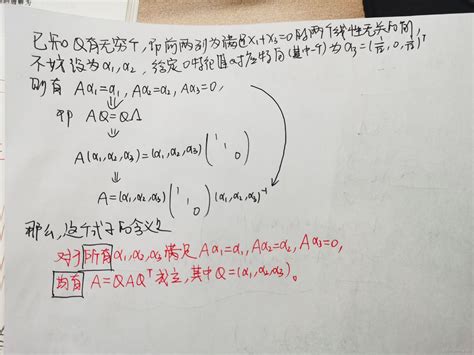 已知Q有无穷个,即前两列为满足x₁+x₃=0的两个线性无关向量,
不妨设为α₁,α₂,给定0特征值对应特向(其中一个)为α₃=(1/√2,0,1/√2)ᵀ
则有 Aα₁=α₁,Aα₂=α₂,Aα₃=0,
⇓
即 AQ=QΛ
⇓
A(α₁,α₂,α₃)=(α₁,α₂,α₃)(1 1 0)
⇓
A=(α₁,α₂,α₃)(1 1 0)(α₁,α₂,α₃)⁻¹
那么,这个式子的含义是
对于所有α₁,α₂,α₃满足Aα₁=α₁,Aα₂=α₂,Aα₃=0,
均有 A=QΛQᵀ成立,其中Q=(α₁,α₂,α₃)。